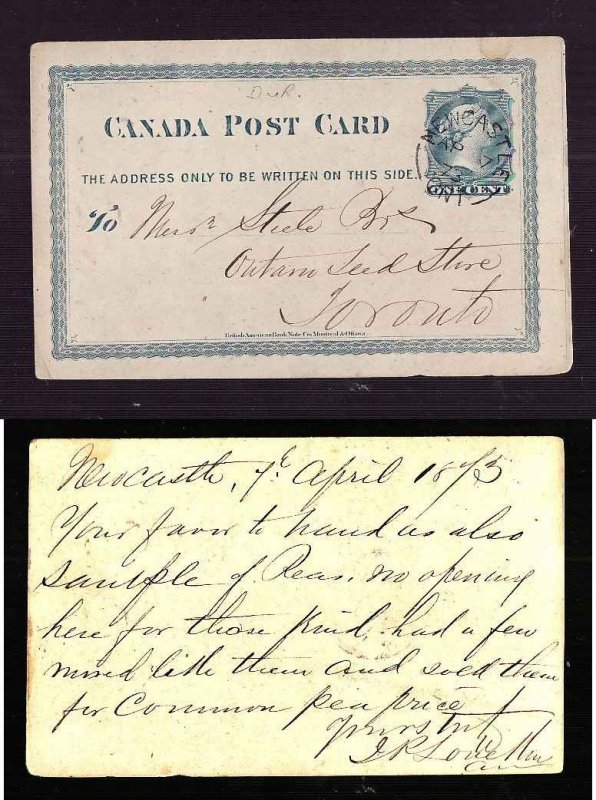 Dur.
CANADA POST CARD
NEWCASTLE
ONT
ONE CENT
THE ADDRESS ONLY TO BE WRITTEN ON THIS SIDE.
To Messrs Steele Bros
Ontario Seed Store
Toronto
British American Bank Note Co. Montreal & Ottawa.
Newcastle, 7th April 1873
Your favor to hand as also
sample of Peas. no opening
here for those kind, had a few
mixed like them and sold them
for Common pea price
yours tr